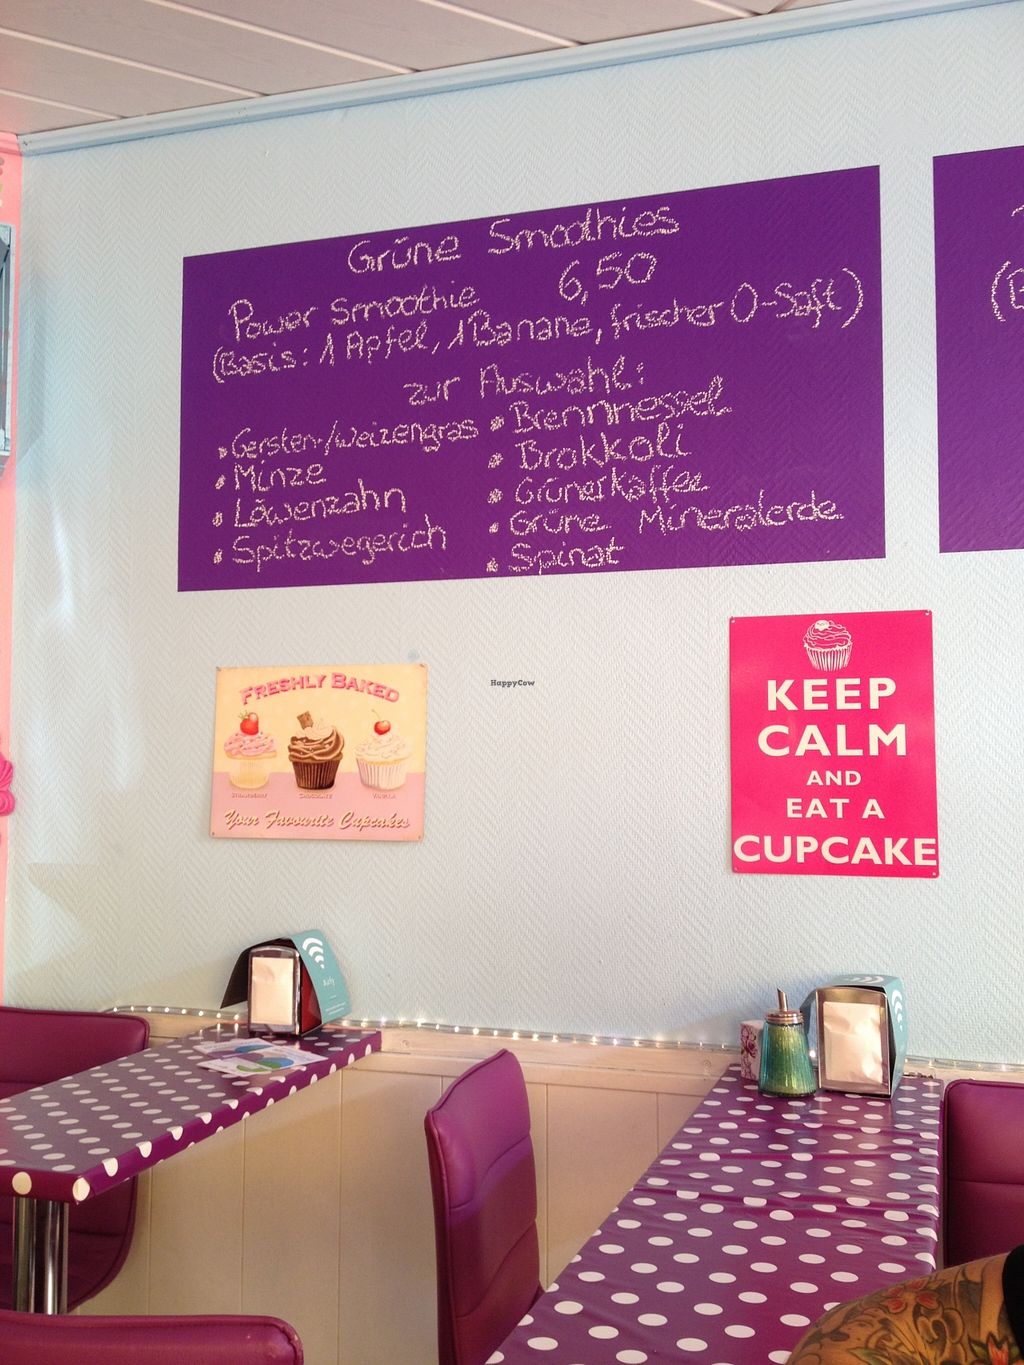 Grüne Smoothies
Power Smoothie 6,50
(Basis: 1 Apfel, 1 Banane, frischer O-Saft)
zur Auswahl:
• Gersten-/Weizengras
• Minze
• Löwenzahn
• Spitzwegerich
• Brennnessel
• Brokkoli
• Grüner Kaffee
• Grüne Mineralerde
• Spinat
FRESHLY BAKED
STRAWBERRY CHOCOLATE VANILLA
Your Favourite Cupcakes
HappyCow
KEEP
CALM
AND
EAT A
CUPCAKE